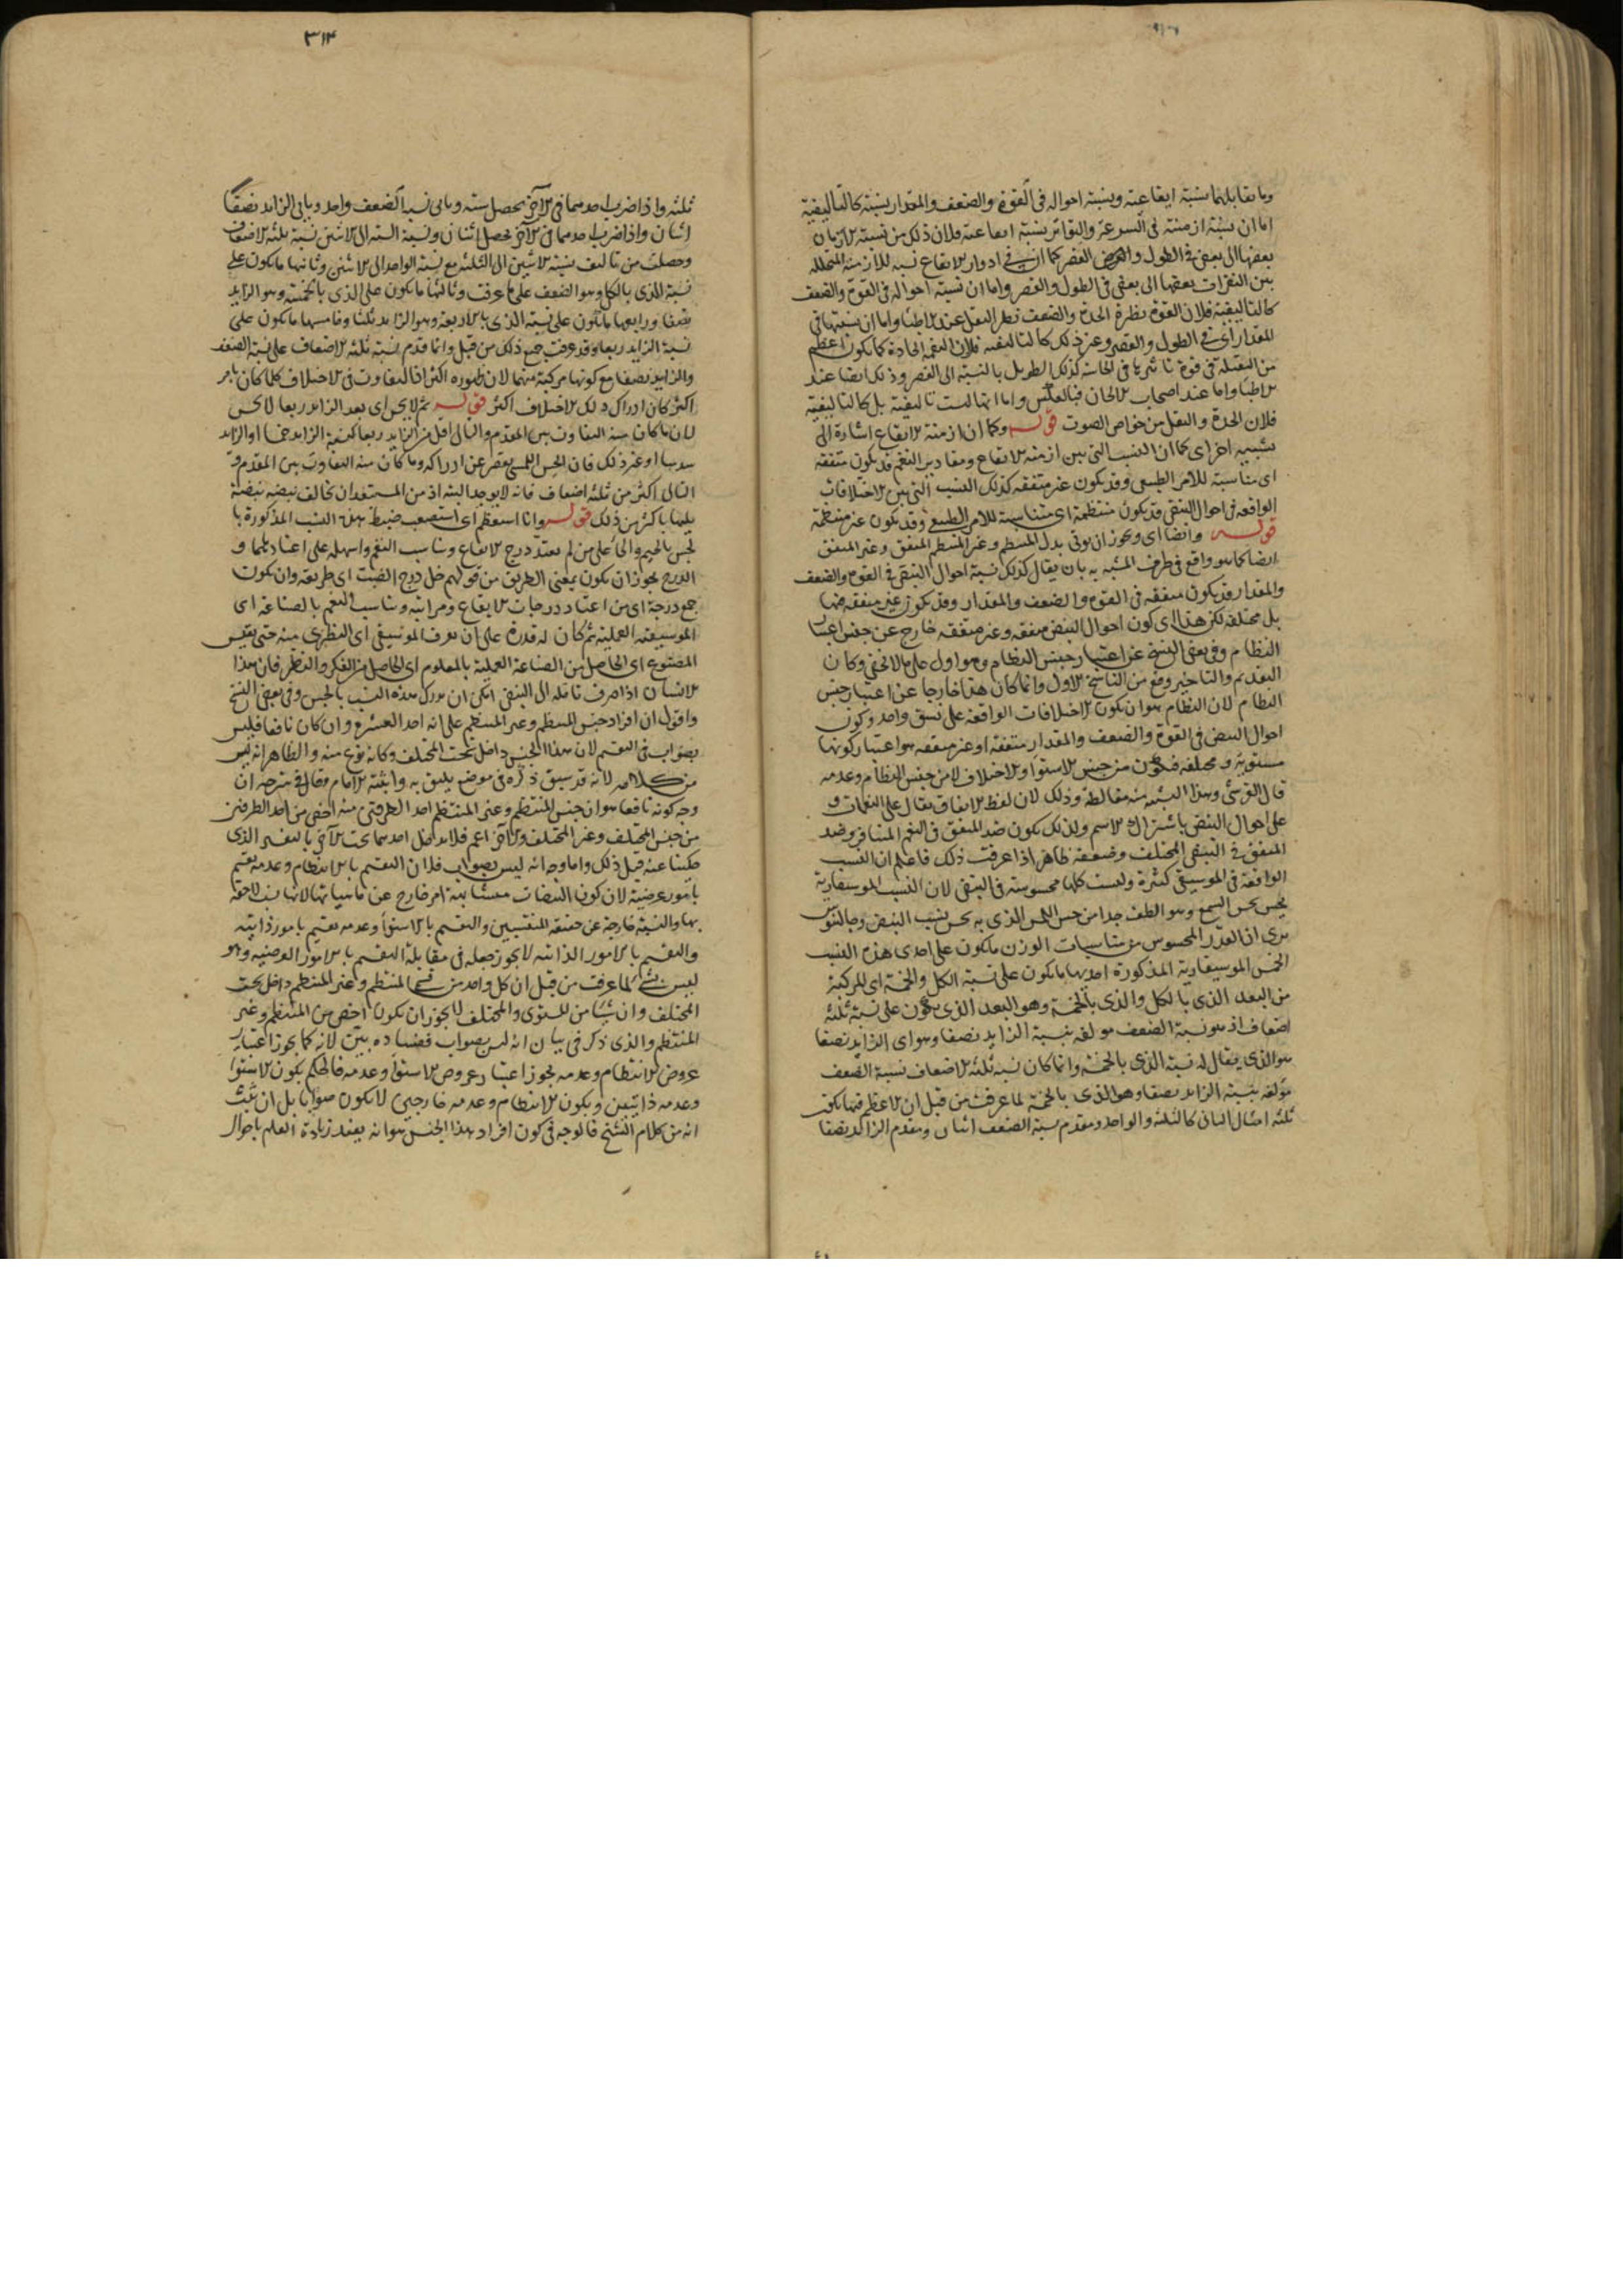 وما تقابلهما بنسبة ايقاعية ونسبة احواله فى القوة والضعف والمقدار بنسبة كالتاليفية
اما ان نسبة ازمنته فى السرعة والتواتر نسبة ايقاعية فلان ذلك من نسبة الازمان
بعضها الى بعض فى الطول والقصر كما ان فى ادوار الايقاع نسبة للازمنة المتخللة
بين النقرات بعضها الى بعض فى الطول والقصر واما ان نسبة احواله فى القوة والضعف
كالتاليفية فلان القوة نظيرة الحدة والضعف نظير الثقل عند الاطبا واما ان نسبتها فى
المقدار اى فى الطول والقصر وغير ذلك كالتاليفية فلان النغم الحادة كما يكون اعظم
من الثقيلة فى قوة تاثيرها فى الحاسة كذلك الطويل بالنسبة الى القصير وذلك ايضا عند
الاطبا واما عند اصحاب الالحان فبالعكس واما انها ليست تاليفية بل كالتاليفية
فلان الحدة والثقل من خواص الصوت قوله وكما ان ازمنة الايقاع اشارة الى
تشبيه اخر اى كما ان النسب التى بين ازمنة الايقاع ومقادير النغم قد يكون متفقة
اى مناسبة للامر الطبيعى وقد يكون غير متفقة كذلك النسب التى بين الاختلافات
الواقعة فى احوال النبض قد يكون منتظمة اى متناسبة للامر الطبيعى وقد يكون غير منتظمة
قوله وايضا اى ويجوز ان يوتى بدل المنتظم وغير المنتظم المتفق وغير المتفق
ايضا كما هو واقع فى طرف المشبه به بان يقال كذلك نسبة احوال النبض فى القوة والضعف
والمقدار قد يكون متفقة فى القوة والضعف والمقدار وقد يكون غير متفقة فيها
بل مختلفة لكن هذا اى كون احوال النبض متفقة وغير متفقة خارج عن جنس اعتبار
النظام وفى بعض النسخ عن اعتبار جنس النظام وهو اولى على ما لا يخفى وكان
التقديم والتاخير وقع من الناسخ الاول وانما كان هذا خارجا عن اعتبار جنس
النظام لان النظام هو ان يكون الاختلافات الواقعة على نسق واحد وكون
احوال النبض فى القوة والضعف والمقدار متفقة او غير متفقة هو اعتبار كونها
مستوية ومختلفة فيكون من جنس الاستوا والاختلاف لا من جنس النظام وعدمه
قال القرشى وهذا التشبيه منه مغالطة وذلك لان لفظ الاتفاق يقال على النغمات و
على احوال النبض باشتراك الاسم ولذلك يكون ضد المتفق فى النغم المتنافر وضد
المتفق فى النبض المختلف وضعفه ظاهر اذا عرفت ذلك فاعلم ان النسب
الواقعة فى الموسيقى كثيرة وليست كلها محسوسة فى النبض لان النسب الموسيقارية
يحس بحس السمع وهو الطف جدا من حس اللمس الذى به يحس بنسب النبض وجالينوس
يرى ان القدر المحسوس من مناسبات الوزن ما يكون على احدى هذه النسب
الخمس الموسيقارية المذكورة احديها ما يكون على نسبة الكل والخمسة اى المركبة
من البعد الذى بالكل والذى بالخمسة وهو البعد الذى يكون على نسبة ثلثة
اضعاف اذ هو نسبة الضعف مولفة بنسبة الزايد نصفا وهو اى الزايد نصفا
هو الذى يقال له نسبة الذى بالخمسة وانما كان نسبة ثلثة الاضعاف نسبة الضعف
مولفة بنسبة الزايد نصفا وهو الذى بالخمسة لما عرفت من قبل ان الاعظم فيها يكون
ثلثة امثال الثانى كالثلثة والواحد ومقدم نسبة الضعف اثنان ومقدم الزائد نصفا
٣١٣
ثلثة واذا ضرب احدهما فى الاخر يحصل ستة وتالى نسبة الضعف واحد وتالى الزايد نصفا
اثنان واذا ضرب احدهما فى الاخر يحصل اثنان ونسبة الستة الى الاثنين نسبة ثلثة الاضعاف
وحصلت من تاليف نسبة الاثنين الى الثلثة مع نسبة الواحد الى الاثنين وثانيها ما يكون على
نسبة الذى بالكل وهو الضعف على ما عرفت وثالثها ما يكون على الذى بالخمسة وهو الزايد
نصفا ورابعها ما يكون على نسبة الذى بالاربعة وهو الزايد ثلثا وخامسها ما يكون على
نسبة الزايد ربعا وقد عرفت جميع ذلك من قبل وانما قدم نسبة ثلثة الاضعاف على نسبة الضعف
والزايد نصفا مع كونها مركبة منهما لان ظهوره اكثر اذ التفاوت فى الاختلاف كلما كان
اكثر كان ادراك ذلك الاختلاف اكثر قوله ثم لا يحس اى بعد الزايد ربعا لا يحس
لان ما كان منه التفاوت بين المقدم والتالى اقل من الزايد ربعا كنسبة الزايد خمسا او الزايد
سدسا او غير ذلك فان الحس اللمسى يقصر عن ادراكه وما كان منه التفاوت بين المقدم و
التالى اكثر من ثلثة اضعاف فانه لا يوجد البتة اذ من المستبعد ان يخالف نبضة نبضة
يليها باكثر من ذلك قوله وانا استعظم اى استصعب ضبط هذه النسب المذكورة با
لحس بالجس والحا على من لم يعتد درج الايقاع وتناسب النغم واسهله على اعتادهما و
الدرج يجوز ان يكون بمعنى الطريق من قولهم خل درج الضب اى طريقه وان يكون
جمع درجة اى من اعتاد درجات الايقاع ومراتبه وتناسب النغم بالصناعة اى
الموسيقية العملية ثم كان له قدرة على ان يعرف الموسيقى اى النظرى منه حتى يقيس
المصنوع اى الحاصل من الصناعة العملية بالمعلوم اى الحاصل من الفكر والنظر فان هذا
الانسان اذا صرف تامله الى النبض امكن ان يدرك هذه النسب بالجس وفى بعض النسخ
واقول ان افراد جنس المنتظم وغير المنتظم على انه احد العشرة وان كان نافعا فليس
بصواب فى التقسيم لان هذا الجنس داخل تحت المختلف وكانه نوع منه والظاهر انه ليس
من كلامه لانه قد سبق ذكره فى موضع يليق به واثبته الامام وقال فى شرحه ان
وجه كونه نافعا هو ان جنس المنتظم وغير المنتظم احد الطرفين منه اخص من احد الطرفين
من جنس المختلف وغير المختلف والاخر اعم فلا يداخل احدهما تحت الاخر بالتفسير الذى
حكينا عنه قبل ذلك واما وجه انه ليس بصواب فلان التقسيم بالانتظام وعدمه تقسيم
بامور عرضية لان كون النبضات متشابهة امر خارج عن ماهياتها لانها نسب لاحقة
بها والنسبة خارجة عن حقيقة المنتسبين والتقسيم بالاستوا وعدمه تقسيم بامور ذاتية
والتقسيم بالامور الذاتية لا يجوز جعله فى مقابلة التقسيم بالامور العرضية وهو
ليس بشى لما عرفت من قبل ان كل واحد من قسمى المنتظم وغير المنتظم داخل تحت
المختلف وان شيئا من المستوى والمختلف لا يجوز ان يكون اخص من المنتظم وغير
المنتظم والذى ذكر فى بيان انه ليس بصواب ففساده بين لانه كما يجوز اعتبار
عروض الانتظام وعدمه يجوز اعتبار عروض الاستوا وعدمه فالحكم بكون الاستوا
وعدمه ذاتيين وبكون الانتظام وعدمه خارجين لا يكون صوابا بل ان ثبت
انه من كلام الشيخ فالوجه فى كون افراد هذا الجنس هو انه يفيد زيادة العلم باحوال